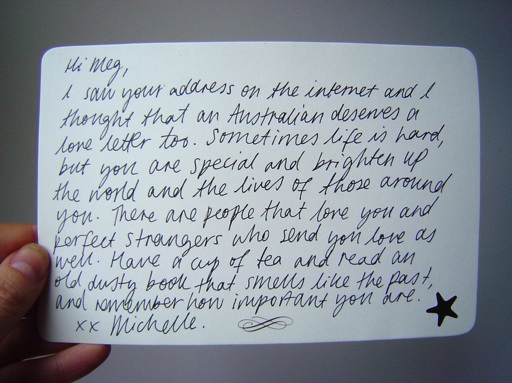 Hi Meg,
I saw your address on the internet and I
thought that an Australian deserves a
love letter too. Sometimes life is hard,
but you are special and brighten up
the world and the lives of those around
you. There are people that love you and
perfect strangers who send you love as
well. Have a cup of tea and read an
old dusty book that smells like the past,
and remember how important you are.
xx Michelle.